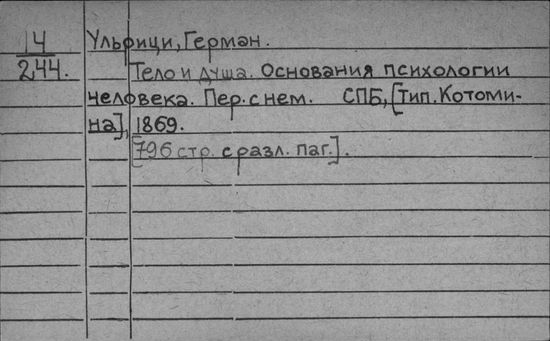 14
244.
Ульрици, Герман.
Тело и душа. Основания психологии
человека. Пер. с нем. СПБ, [тип. Котоми-
на], 1869.
[796 стр. с разл. паг.].